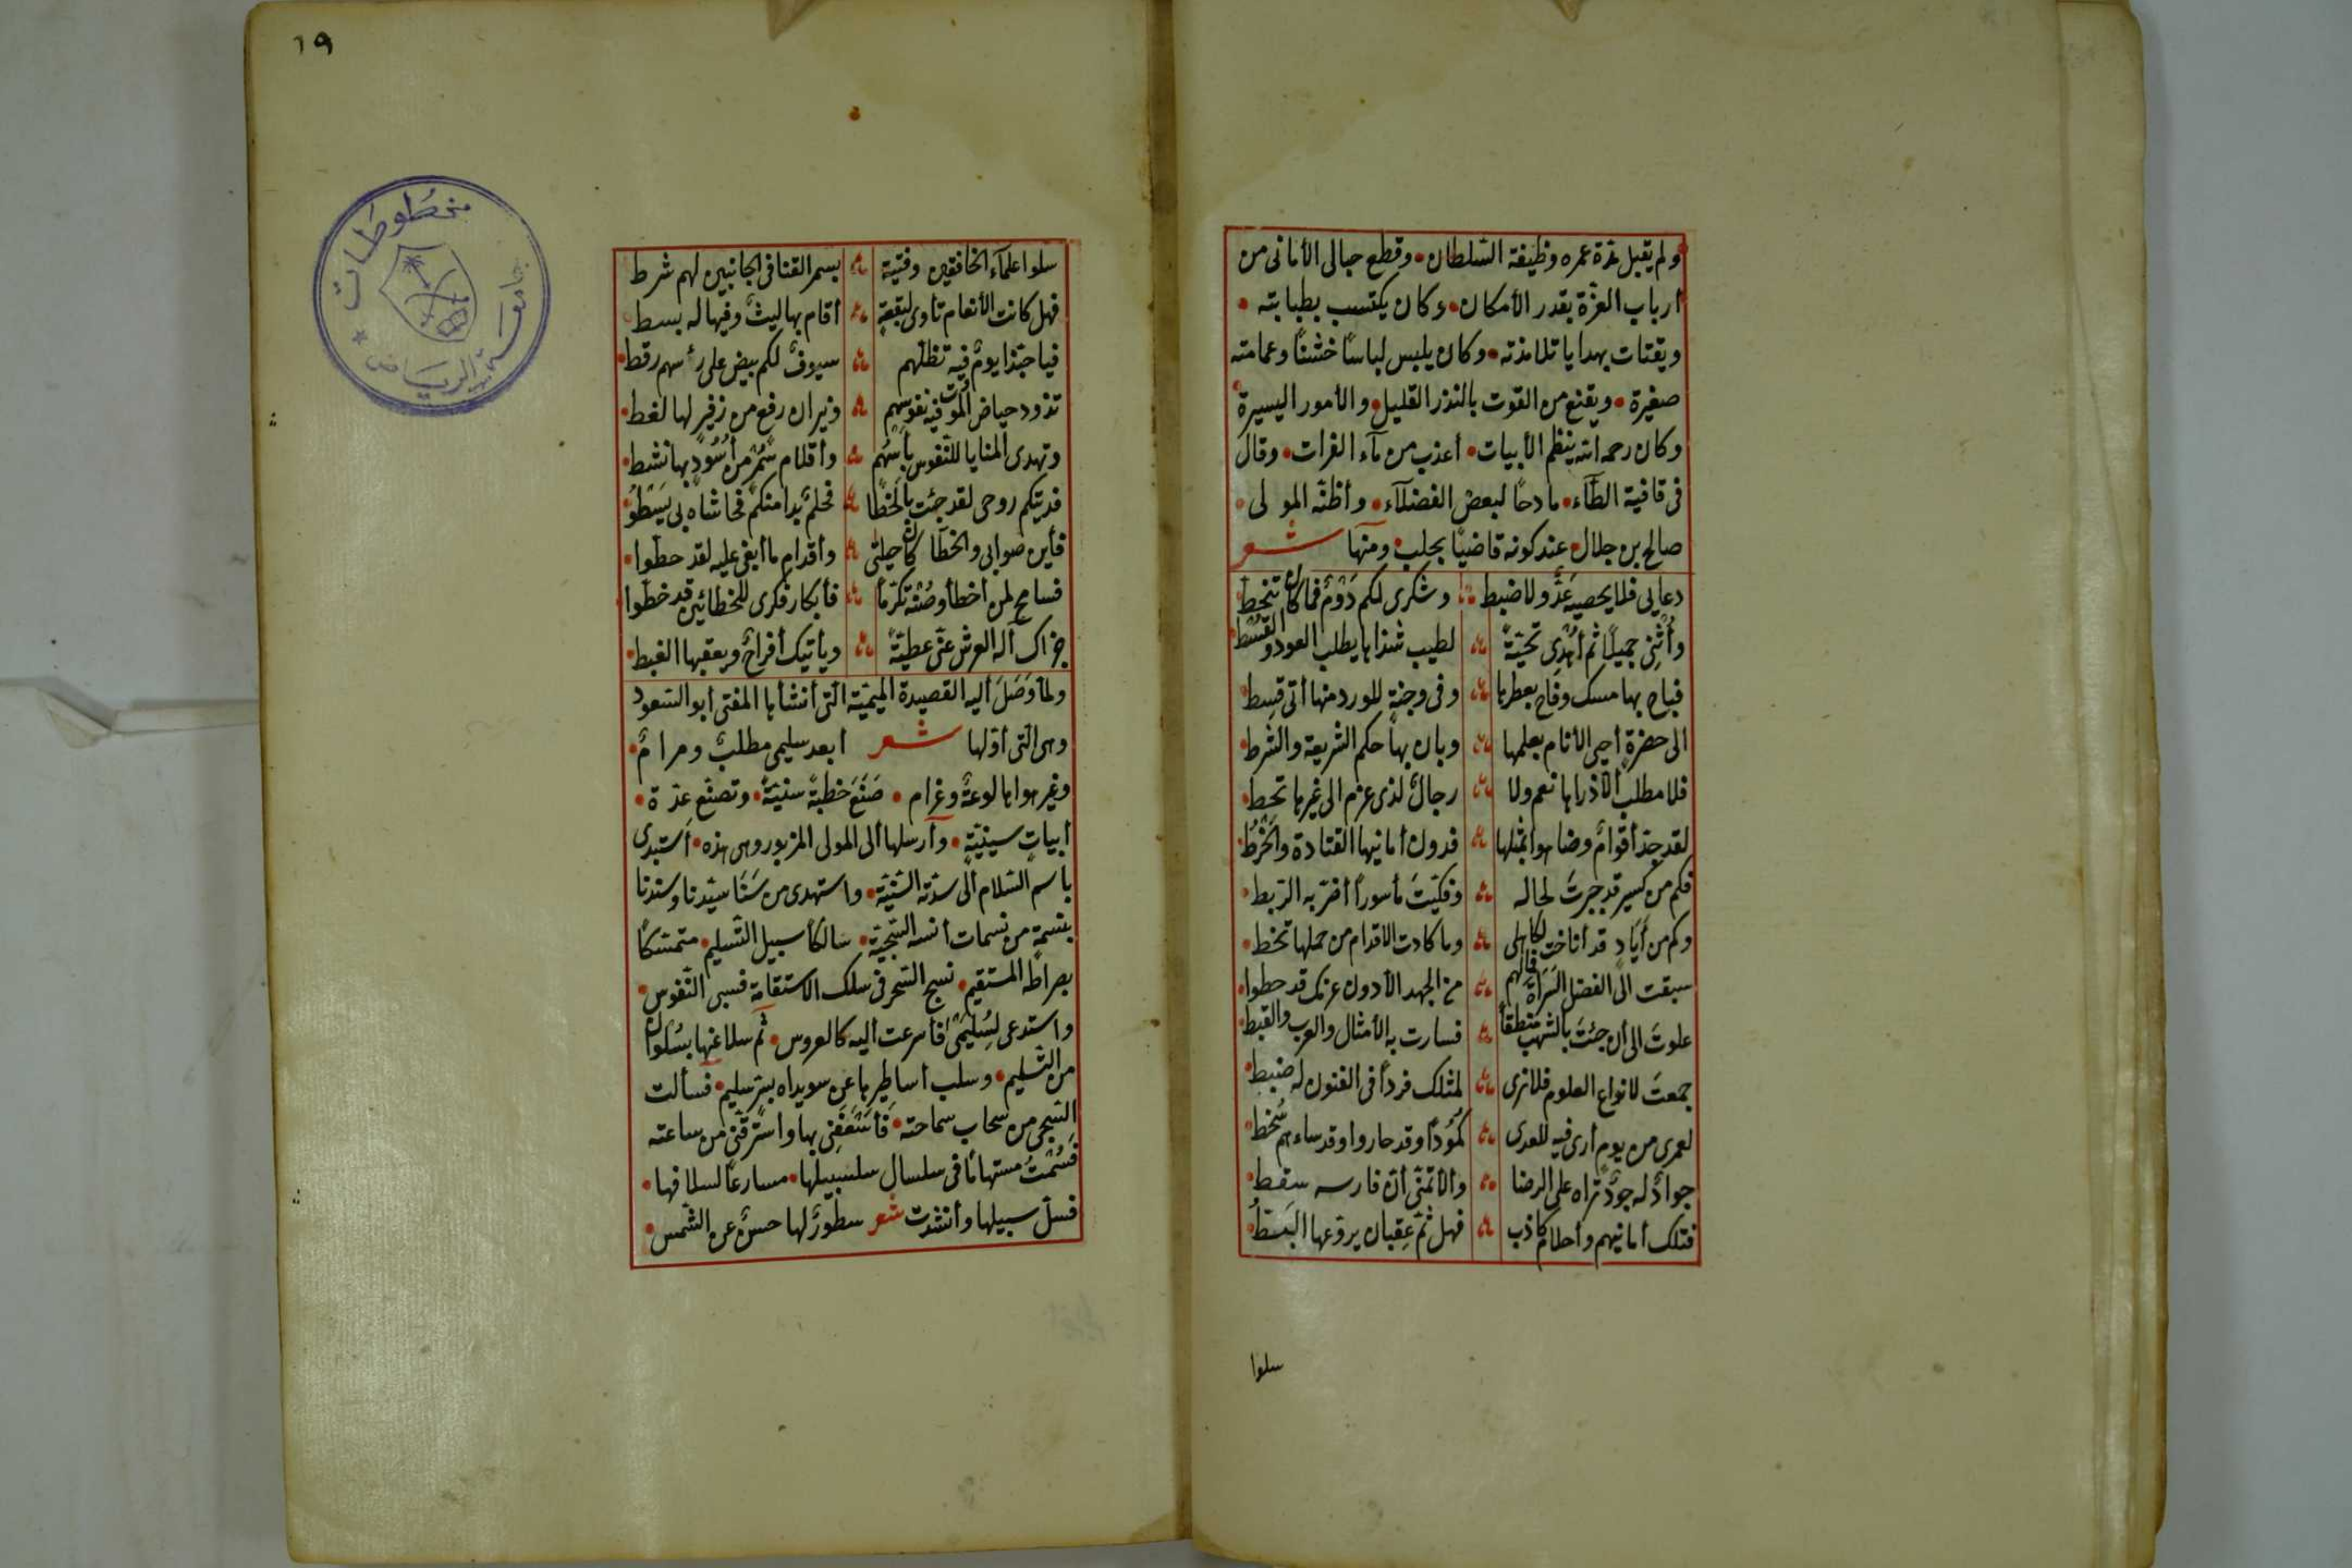 ولم يقبل مدّة عمره وظيفة السّلطان • وقطع حبالى الأمانى من
أرباب العزّة بقدر الأمكان • وكان يكتسب بطبابته •
ويقتات بهدايا تلامذته • وكان يلبس لباسًا خشنًا وعمامته
صغيرة • ويقنع من القوت بالنذر القليل • والأمور اليسيرة
وكان رحمه الله ينظم الأبيات • أعذب من مآء الفرات • وقال
فى قافية الطّآء • مادحًا لبعض الفضلآء • وأظنّه المولى •
صالح بن جلال • عند كونه قاضيًا بحلب • ومنها شعر
دعايى فلا يحصيه عدٌّ ولا ضبط وشكرى لكم دَوْمٌ فما كان ينحط
وأُثنِى جميلًا ثم أُهْدِى تحيّةً لطيب شذاها يطلب العود والقسط
فباح بها مسك وفاح بعطرها وفى وجنةٍ للورد منها أتى قسط
الى حضرةٍ أحيى الأنام بعلمها وبان بها حكم الشريعة والشرط
فلا مطلب الا ذراها نعم ولا رجالٌ لذى عزم الى غيرها تحط
لقد جدّ أقوامٌ وضاهوا بمثلها فدون أمانيها القتادة والخَرْطُ
فكم من كسير قد جبرتَ لحاله وفكّيتَ مأسورًا أضرّ به الرّبط
وكم من أيادٍ قد أناخت لكاهلى وما كادت الاقدام من حملها تخط
سبقت الى الفضل السَراةَ فمالهم من الجهد الا دون عزمك قد حطوا
علوتَ الى أن جئتَ بالشهب منطقاً فسارت به الأمثال والعرب والقبط
جمعتَ لانواع العلوم فلا نرى لمثلك فردًا فى الفنون له ضبط
لعمرى من يوم أرى فيه للعدى كمؤدًا وقد حاروا وقد ساءهم سُخط
جوادٌ له جودٌ تراه على الرضا والا تمنّى أنّ فارسه سقط
فتلك أمانيهم وأحلام كاذب فهل ثمّ عِقبان يروّعها البَطُّ
سلوا
١٩
سلوا علمآء الخافقين وفتية بسمر القنا فى الجانبين لهم شرط
فهل كانت الأنعام تأوى لبقعةٍ أقام بها ليثٌ وفيها له بسط
فيا حبّذا يومٌ فيه تظلّهم سيوفٌ لكم بيض على رأسهم رقط
تذود حياض الموت فيه نفوسهم ونيران رفع من زفيرٍ لها لغط
وتهدى المنايا للنّفوس بأسهُم وأقلام سُمْرٍ من أُسُودٍ بها نشط
فديتكم روحى لقد جئت بالخطا فحلمٌ بدا منكم فحاشاه بى يَسْطُو
فأين صوابى والخطا كان حيلتى وأقدام ما أبغى عليه لقد حطّوا
فسامح لمن أخطأ وصُنْه تكرّمًا فأبكار فكرى للخطائين قد خطّوا
جزاك آله العرش عنّى عطيّةً ويأتيك أفراحٌ ويعقبها الغبط
ولمّا وَصَلَ أليه القصيدة الميميّة الّتى أنشأها المفتى أبو السّعود
وهى الّتى أوّلها شعر أبعد سليمى مطلبٌ ومرامٌ •
وغير هواها لوعةٌ وغرام • صَنَعَ خطبةً سنيّةً • وتصنّع عدّة •
أبياتٍ سينيّةٍ • وأرسلها ألى المولى المزبور وهى هذه • أستبدى
باسم السّلام ألى سدّته السّنيّة • واستهدى من سَنَا سيّدنا وسندنا
بنسمةٍ من نسمات أنسه السّجيّة • سالكًا سبيل التّسليم • متمسّكًا
بصراطه المستقيم • نسج السّحر فى سلك الاستقامة فسبى النّفوس •
واستدعى لسُليمَى فأسرعت أليه كالعروس • ثمّ سلا عنها بسُلوان
من التّسليم • وسلب أساطيرها عن سويداه بسرّ سليم • فسألت
السّجى من سحاب سماحته • فأستَعَفَنِى بها واسترقنى من ساعته
فَسُمْتُ مستهامًا فى سلسال سلسبيلها • مسارعًا لسلافها •
فسل سبيلها وأنشدت شعر سطورٌ لها حسنٌ عن الشّمس •
مخطوطات
جامعة الرياض